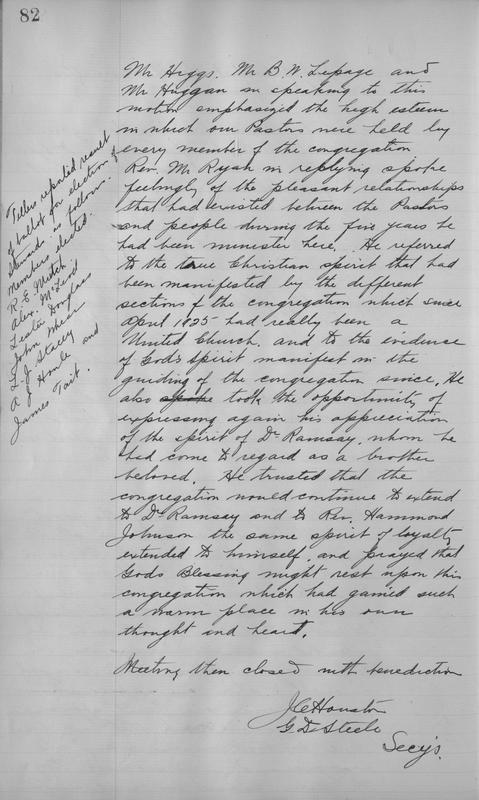 82
Mr Higgs. Mr B. W. Lepage and
Mr Huggan in speaking to this
motion emphasized the high esteem
in which our Pastors were held by
every member of the congregation
Rev. Mr Ryan in replying spoke
feelingly of the pleasant relationships
that had existed between the Pastors
and people during the five years he
had been minister here. He referred
to the true Christian spirit that had
been manifested by the different
sections of the congregation which since
April 1925 had really been a
United Church. and to the evidence
of God's Spirit manifest in the
guiding of the congregation since. He
also spoke took the opportunity of
expressing again his appreciation
of the spirit of Dr Ramsay, whom he
had come to regard as a brother
beloved. He trusted that the
congregation would continue to extend
to Dr Ramsay and to Rev. Hammond
Johnson the same spirit of loyalty
extended to himself. and prayed that
Gods Blessing might rest upon this
congregation which had gained such
a warm place in his own
thought and heart.
Meeting then closed with benediction
J C Houston
G D Steele
Secy's.
Tellers reported result
of ballot for election of
Stewards as follows:
Members elected.
R. E. Mutch
Alex. McLeod
Lester Douglas
John
L. J. Stacey
A J Howle and
James Tait.